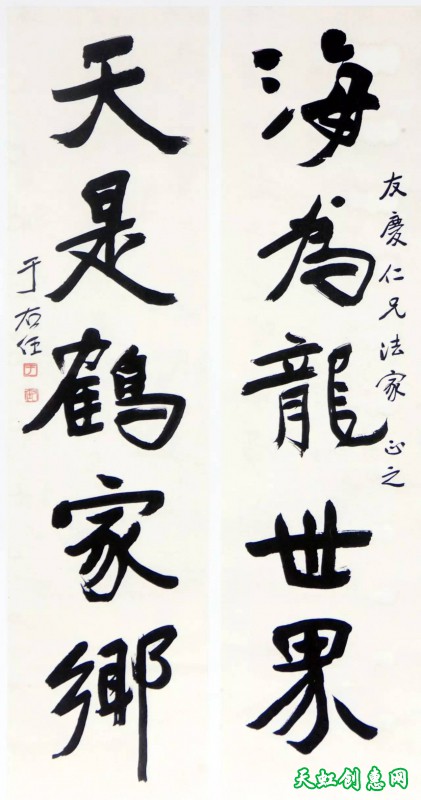 海為龍世界
友慶仁兄法家正之
天是鶴家鄉
于右任
天虹创意网